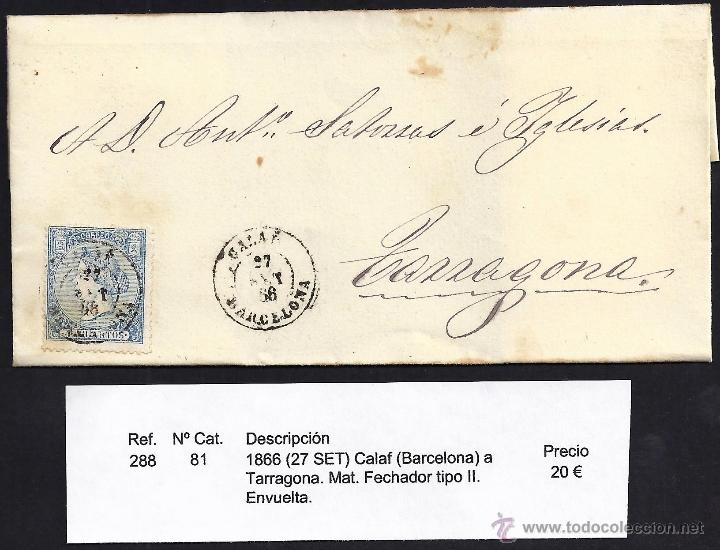 A D. Antº. Satorras é Iglesias.
Tarragona.
CALAF
27
SET
66
BARCELONA
27
66
CUARTOS
Ref. Nº Cat. Descripción Precio
288 81 1866 (27 SET) Calaf (Barcelona) a 20 €
Tarragona. Mat. Fechador tipo II.
Envuelta.
todocoleccion
www.todocoleccion.net